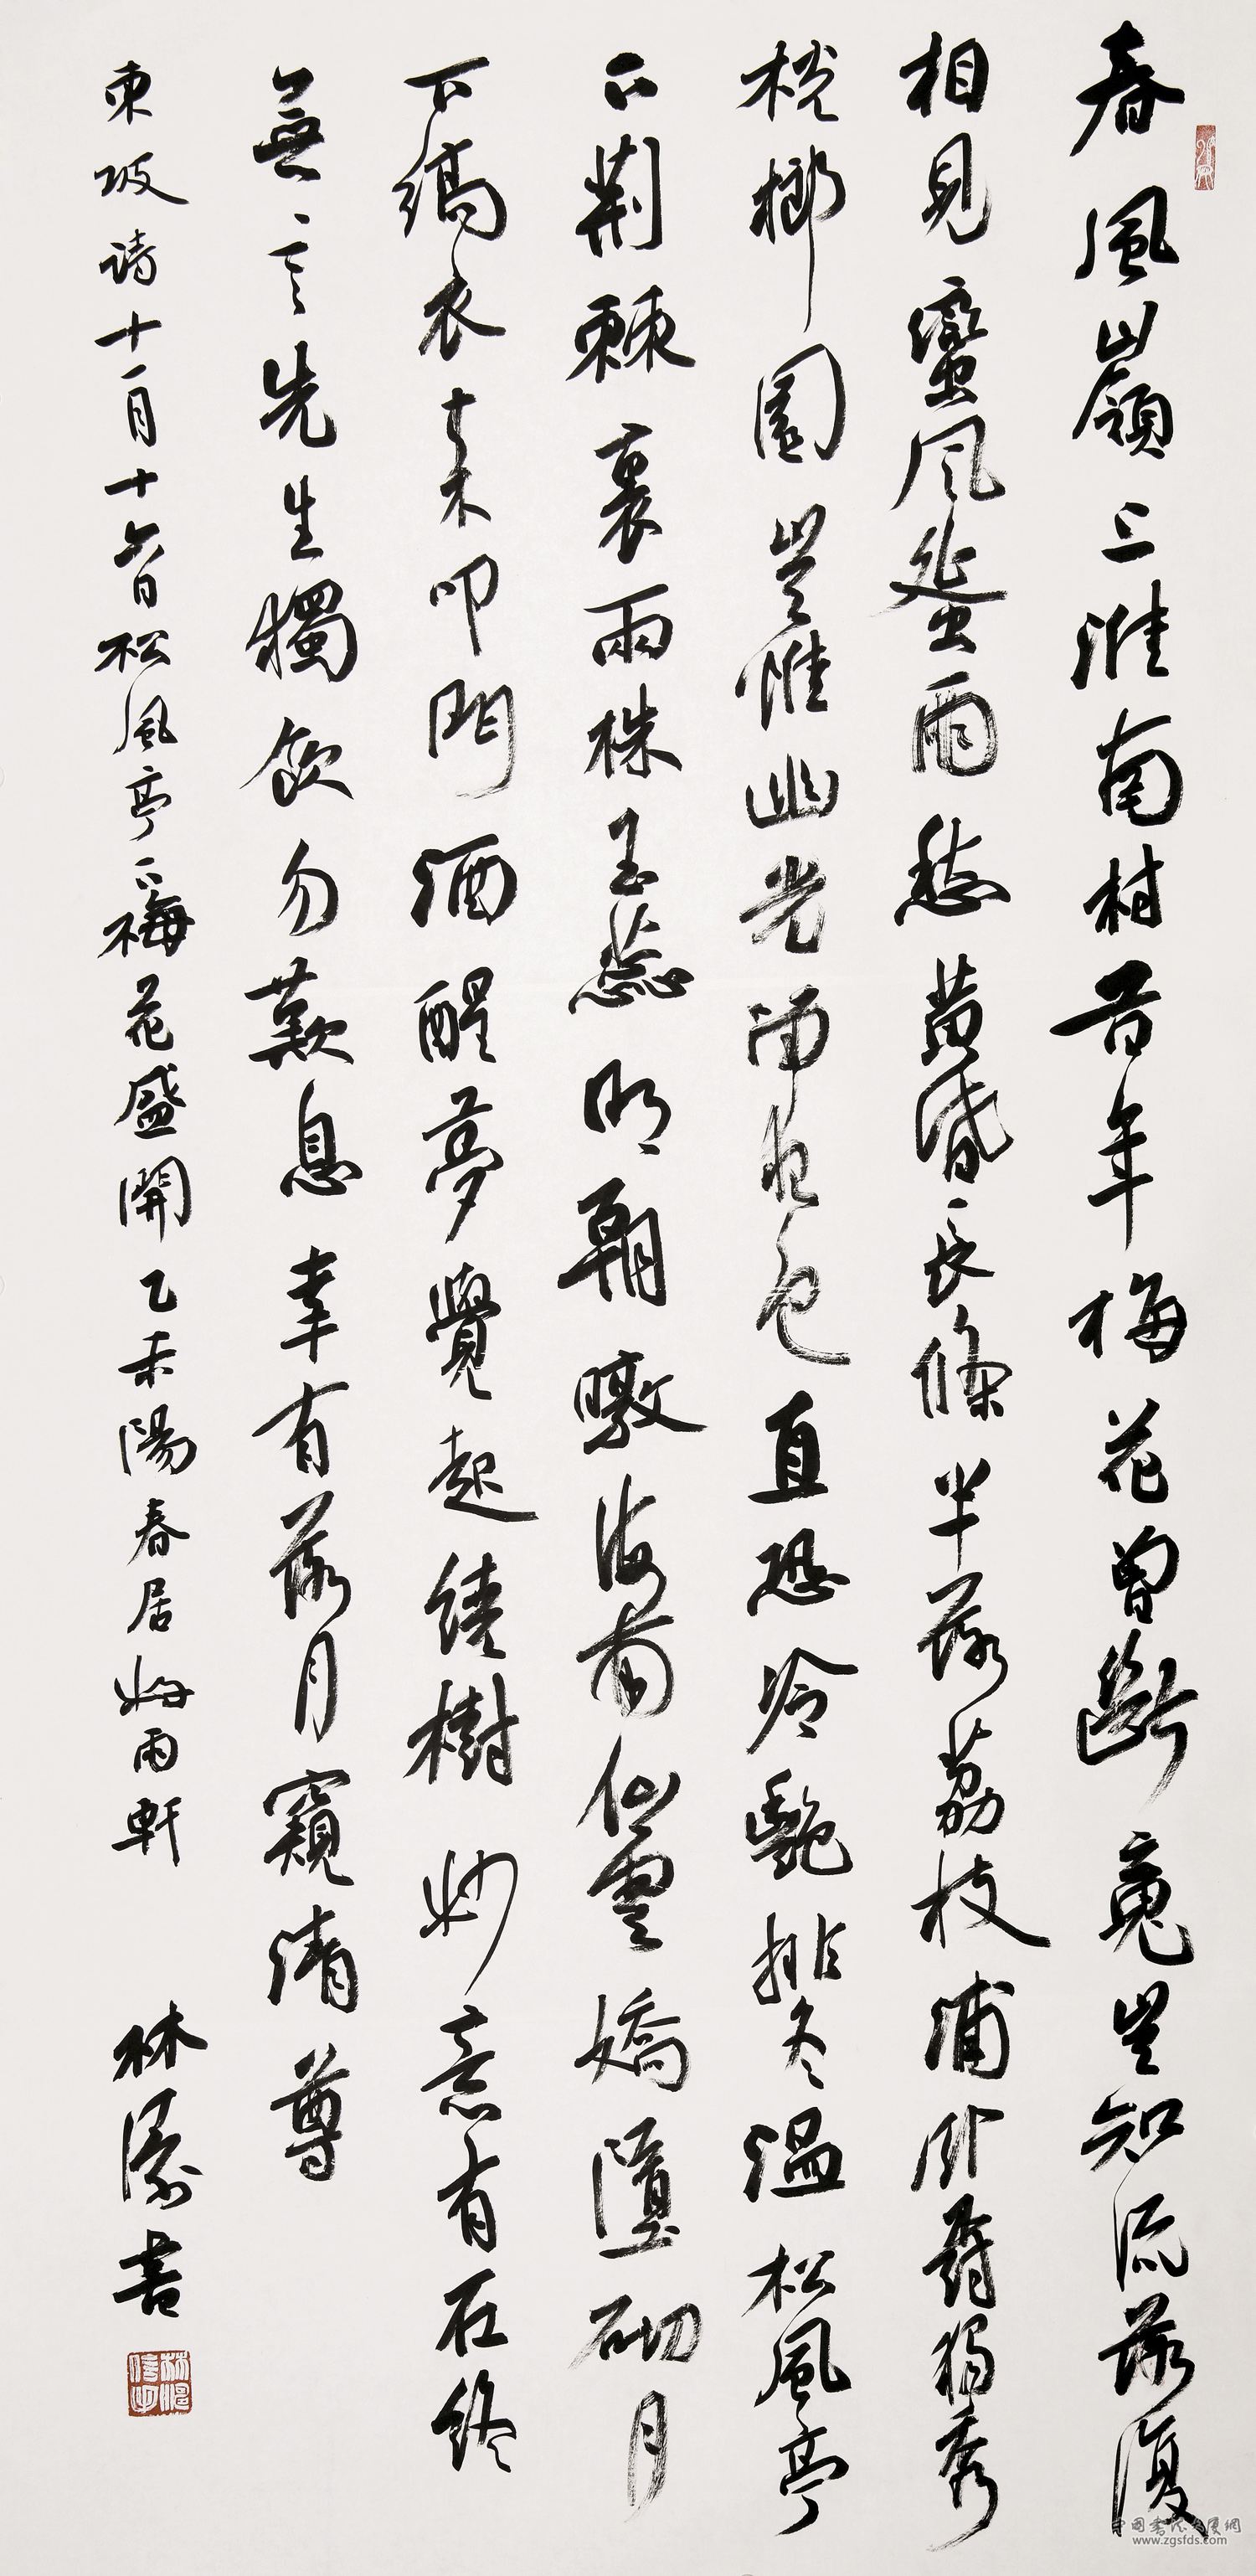 春風嶺上淮南村昔年梅花曾斷魂豈知流落復
相見蠻風蜑雨愁黃昏長條半落荔枝浦卧樹獨秀
桄榔園豈惟幽光留夜色直恐冷艷排冬溫松風亭
下荊棘裏兩株玉蕊明朝暾海南仙雲嬌墮砌月
下縞衣來叩門酒醒夢覺起繞樹妙意有在終
無言先生獨飲勿歎息幸有落月窺清尊
東坡詩十一月十六日松風亭下梅花盛開乙未陽春居好雨軒 林濠書
www.zgsfds.com